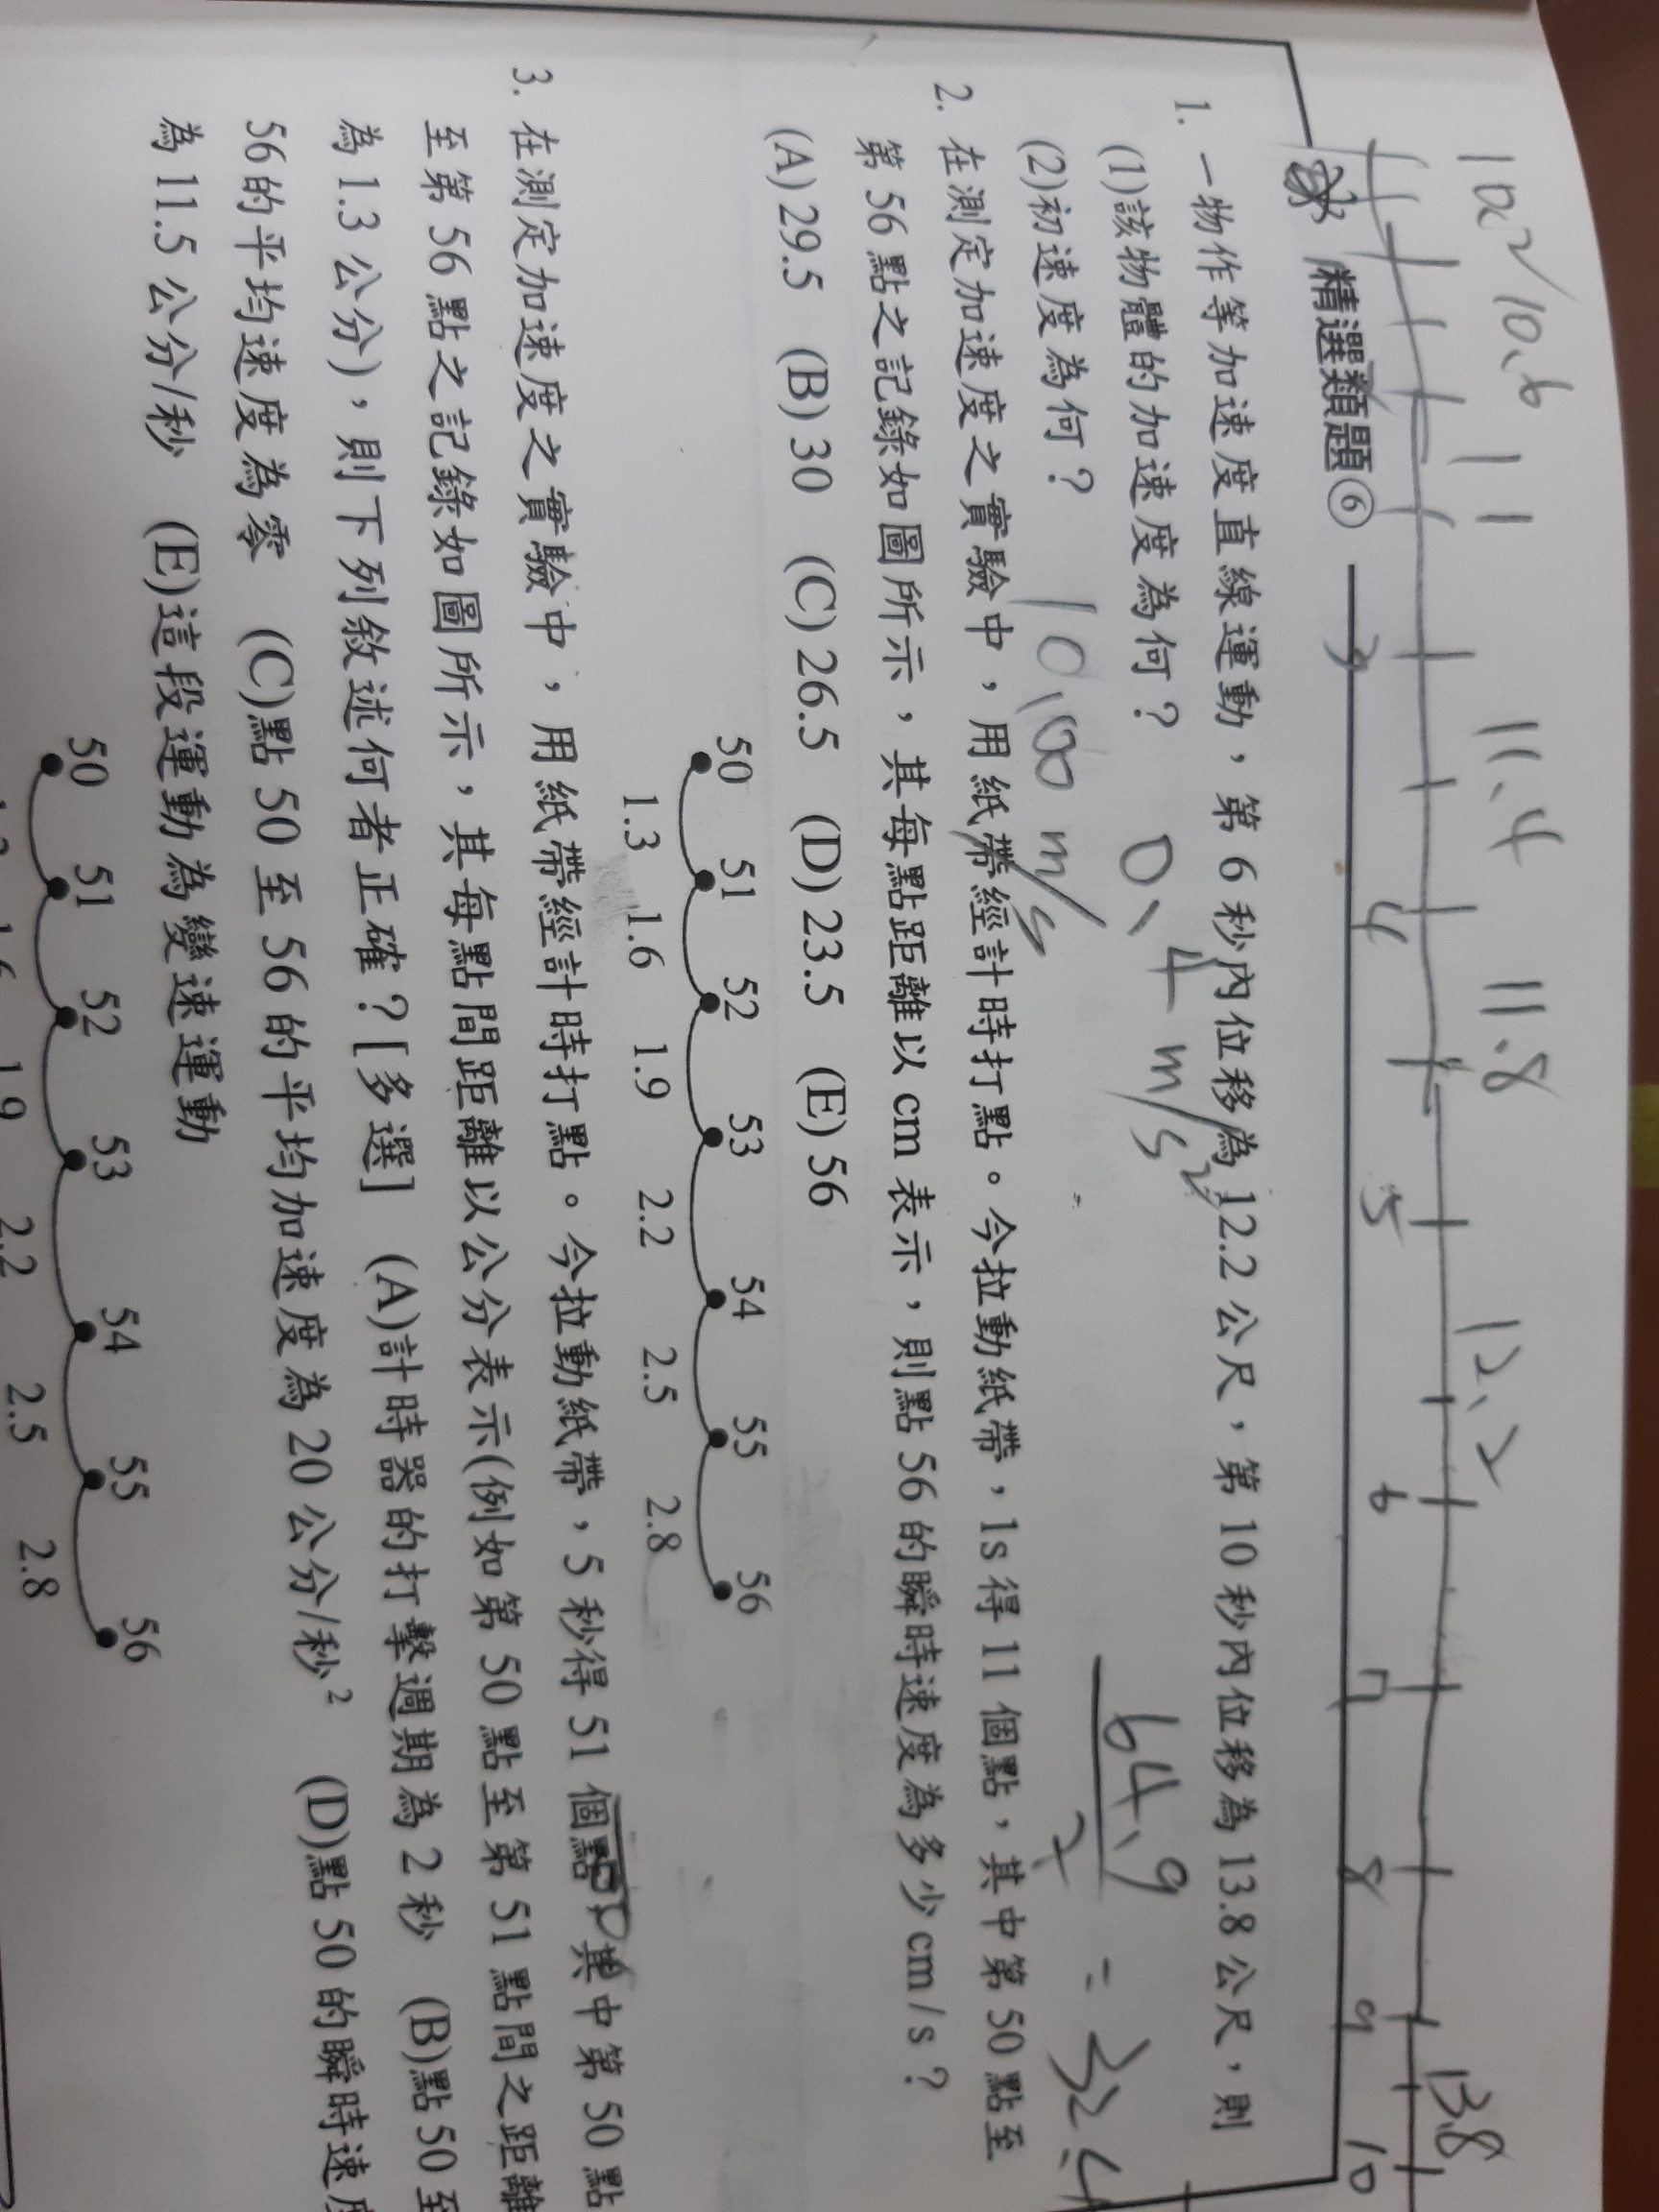 10.2 10.6 11 11.4 11.8 12.2 13.8
3 4 5 6 7 8 9 10
精選類題⑥
1. 一物作等加速度直線運動，第 6 秒內位移為 12.2 公尺，第 10 秒內位移為 13.8 公尺，則
(1)該物體的加速度為何？ 0.4 m/s2
(2)初速度為何？ 10.00 m/s
64.9
2
= 32.4
2. 在測定加速度之實驗中，用紙帶經計時打點。今拉動紙帶，1s 得 11 個點，其中第 50 點至
第 56 點之記錄如圖所示，其每點距離以 cm 表示，則點 56 的瞬時速度為多少 cm/s？
(A) 29.5 (B) 30 (C) 26.5 (D) 23.5 (E) 56
50 51 52 53 54 55 56
1.3 1.6 1.9 2.2 2.5 2.8
3. 在測定加速度之實驗中，用紙帶經計時打點。今拉動紙帶，5 秒得 51 個點 其中第 50 點
至第 56 點之記錄如圖所示，其每點間距離以公分表示(例如第 50 點至第 51 點間之距離
為 1.3 公分)，則下列敘述何者正確？[多選] (A)計時器的打擊週期為 2 秒 (B)點 50 至
56 的平均速度為零 (C)點 50 至 56 的平均加速度為 20 公分/秒² (D)點 50 的瞬時速度
為 11.5 公分/秒 (E)這段運動為變速運動
50 51 52 53 54 55 56
1.9 2.2 2.5 2.8